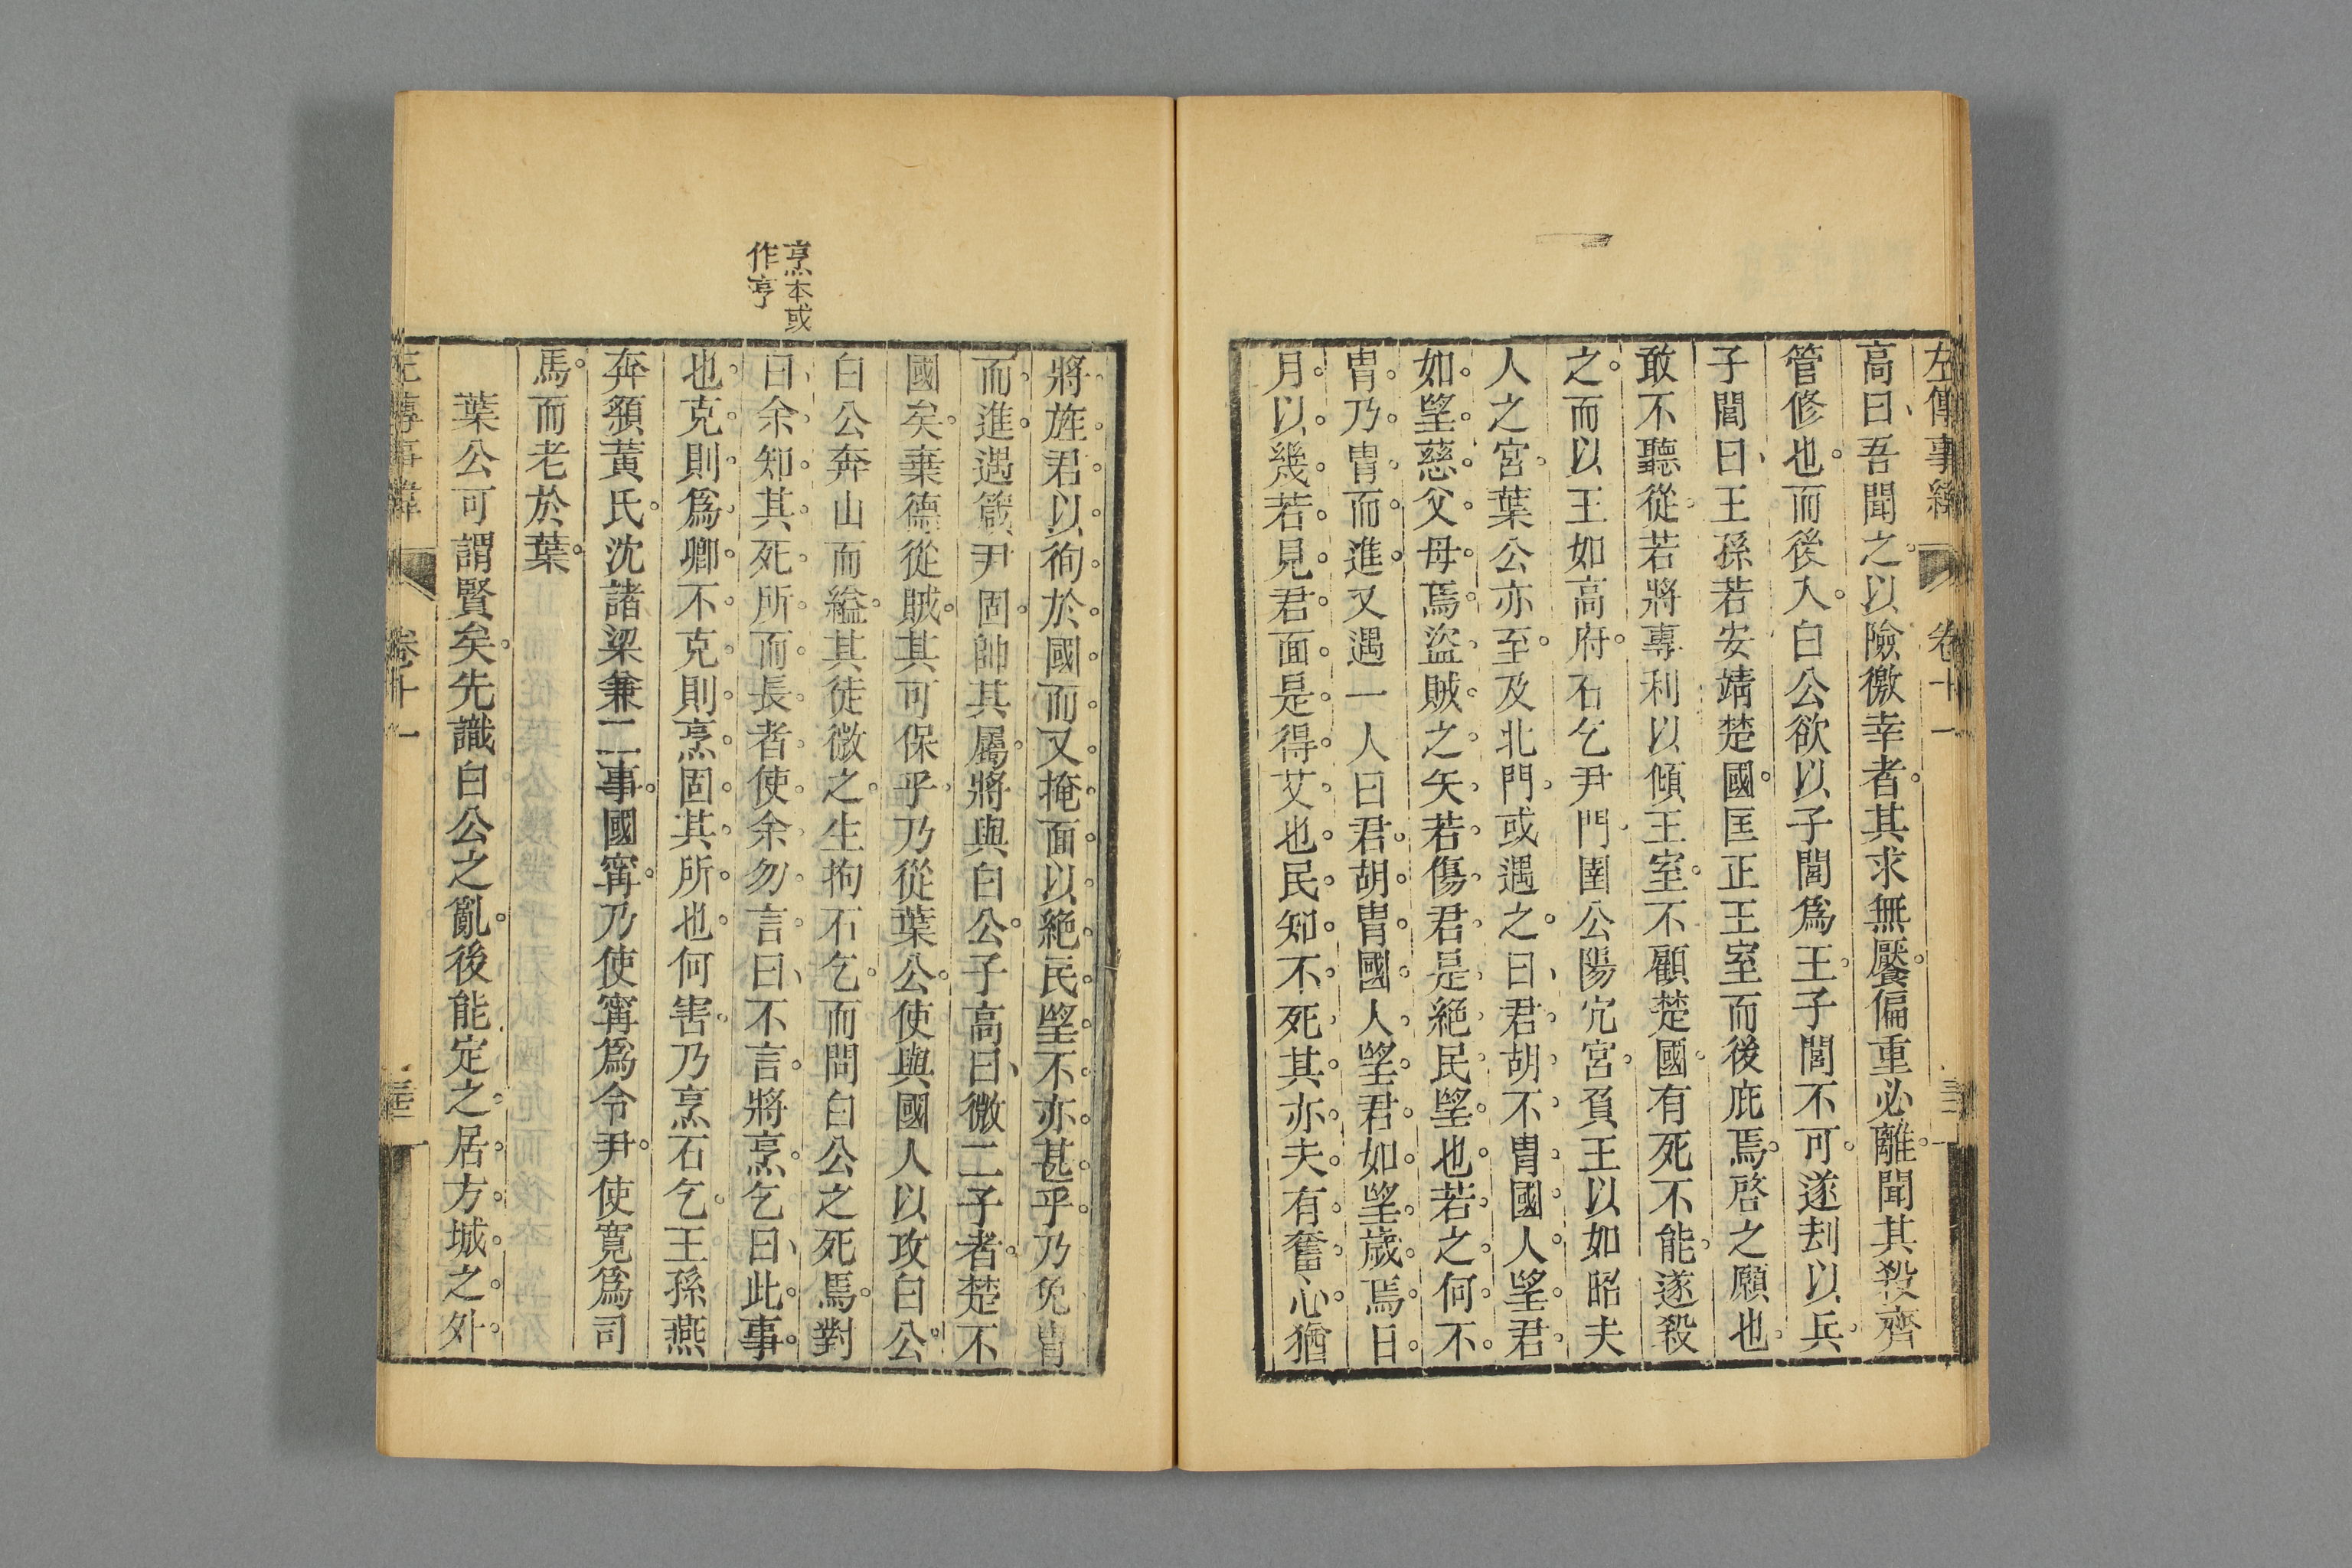 左傳事緯 卷十一
高曰吾聞之以險徼幸者其求無饜偏重必離聞其殺齊
管修也而後入白公欲以子閭爲王子閭不可遂刦以兵
子閭曰王孫若安靖楚國匡正王室而後庇焉啓之願也
敢不聽從若將專利以傾王室不顧楚國有死不能遂殺
之而以王如高府石乞尹門圉公陽宂宮負王以如昭夫
人之宮葉公亦至及北門或遇之曰君胡不胄國人望君
如望慈父母焉盜賊之矢若傷君是絕民望也若之何不
胄乃胄而進又遇一人曰君胡胄國人望君如望歲焉日
月以幾若見君面是得艾也民知不死其亦夫有奮心猶
將旌君以徇於國而又掩面以絕民望不亦甚乎乃免胄
而進遇箴尹固帥其屬將與白公子高曰微二子者楚不
國矣棄德從賊其可保乎乃從葉公使與國人以攻白公
白公奔山而縊其徒微之生拘石乞而問白公之死焉對
曰余知其死所而長者使余勿言曰不言將烹乞曰此事
也克則爲卿不克則烹固其所也何害乃烹石乞王孫燕
奔頯黃氏沈諸梁兼二事國甯乃使甯爲令尹使寬爲司
馬而老於葉
葉公可謂賢矣先識白公之亂後能定之居方城之外
烹本或
作亨
左傳事緯 卷十一